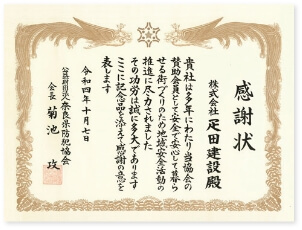 感謝状
株式会社 疋田建設殿
貴社は多年にわたり当協会の
賛助会員として安全で安心して暮ら
せる街づくりのため地域安全活動の
推進に尽力されました
その功労は誠に多大であります
ここに記念品を添えて感謝の意を
表します
令和四年十月七日
公益財団法人奈良県防犯協会
会長 菊池 攻